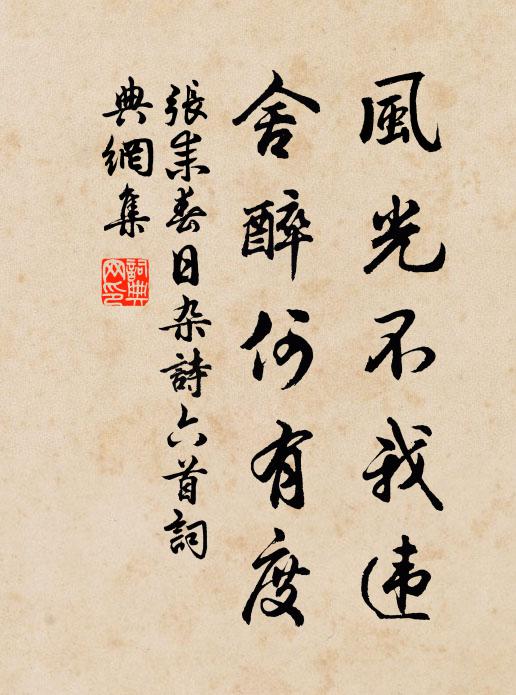 風光不我违
舍醉何有度
張耒春日杂詩六首詞
典網集
詞典网印